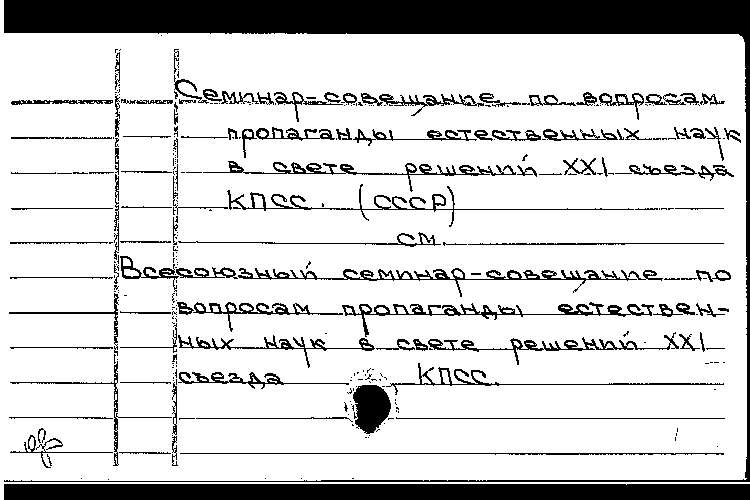 Семинар-совещание по вопросам
пропаганды естественных наук
в свете решений XXI съезда
КПСС. (СССР)
см.
Всесоюзный семинар-совещание по
вопросам пропаганды естествен-
ных наук в свете решений XXI
съезда КПСС.